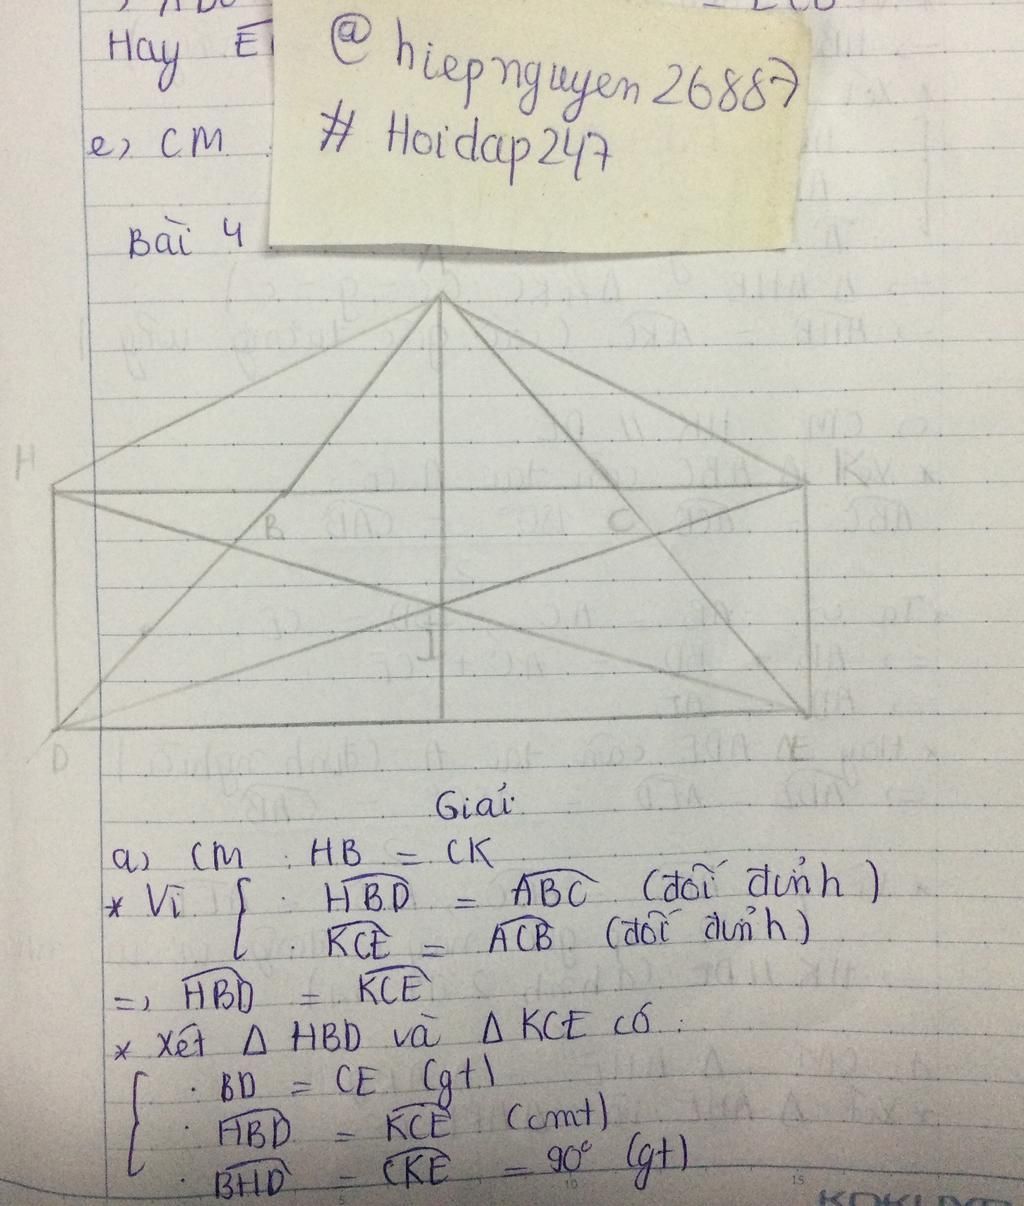 Hay
@hiepnguyen26887
# Hoidap247
e) CM
Bài 4
H
B C
I
D E
Giải:
a) CM : HB = CK
* Vì { · HBD = ABC (đối đỉnh)
· KCE = ACB (đối đỉnh)
=> HBD = KCE
* Xét Δ HBD và Δ KCE có :
· BD = CE (gt)
· HBD = KCE (cmt)
· BHD = CKE = 90° (gt)